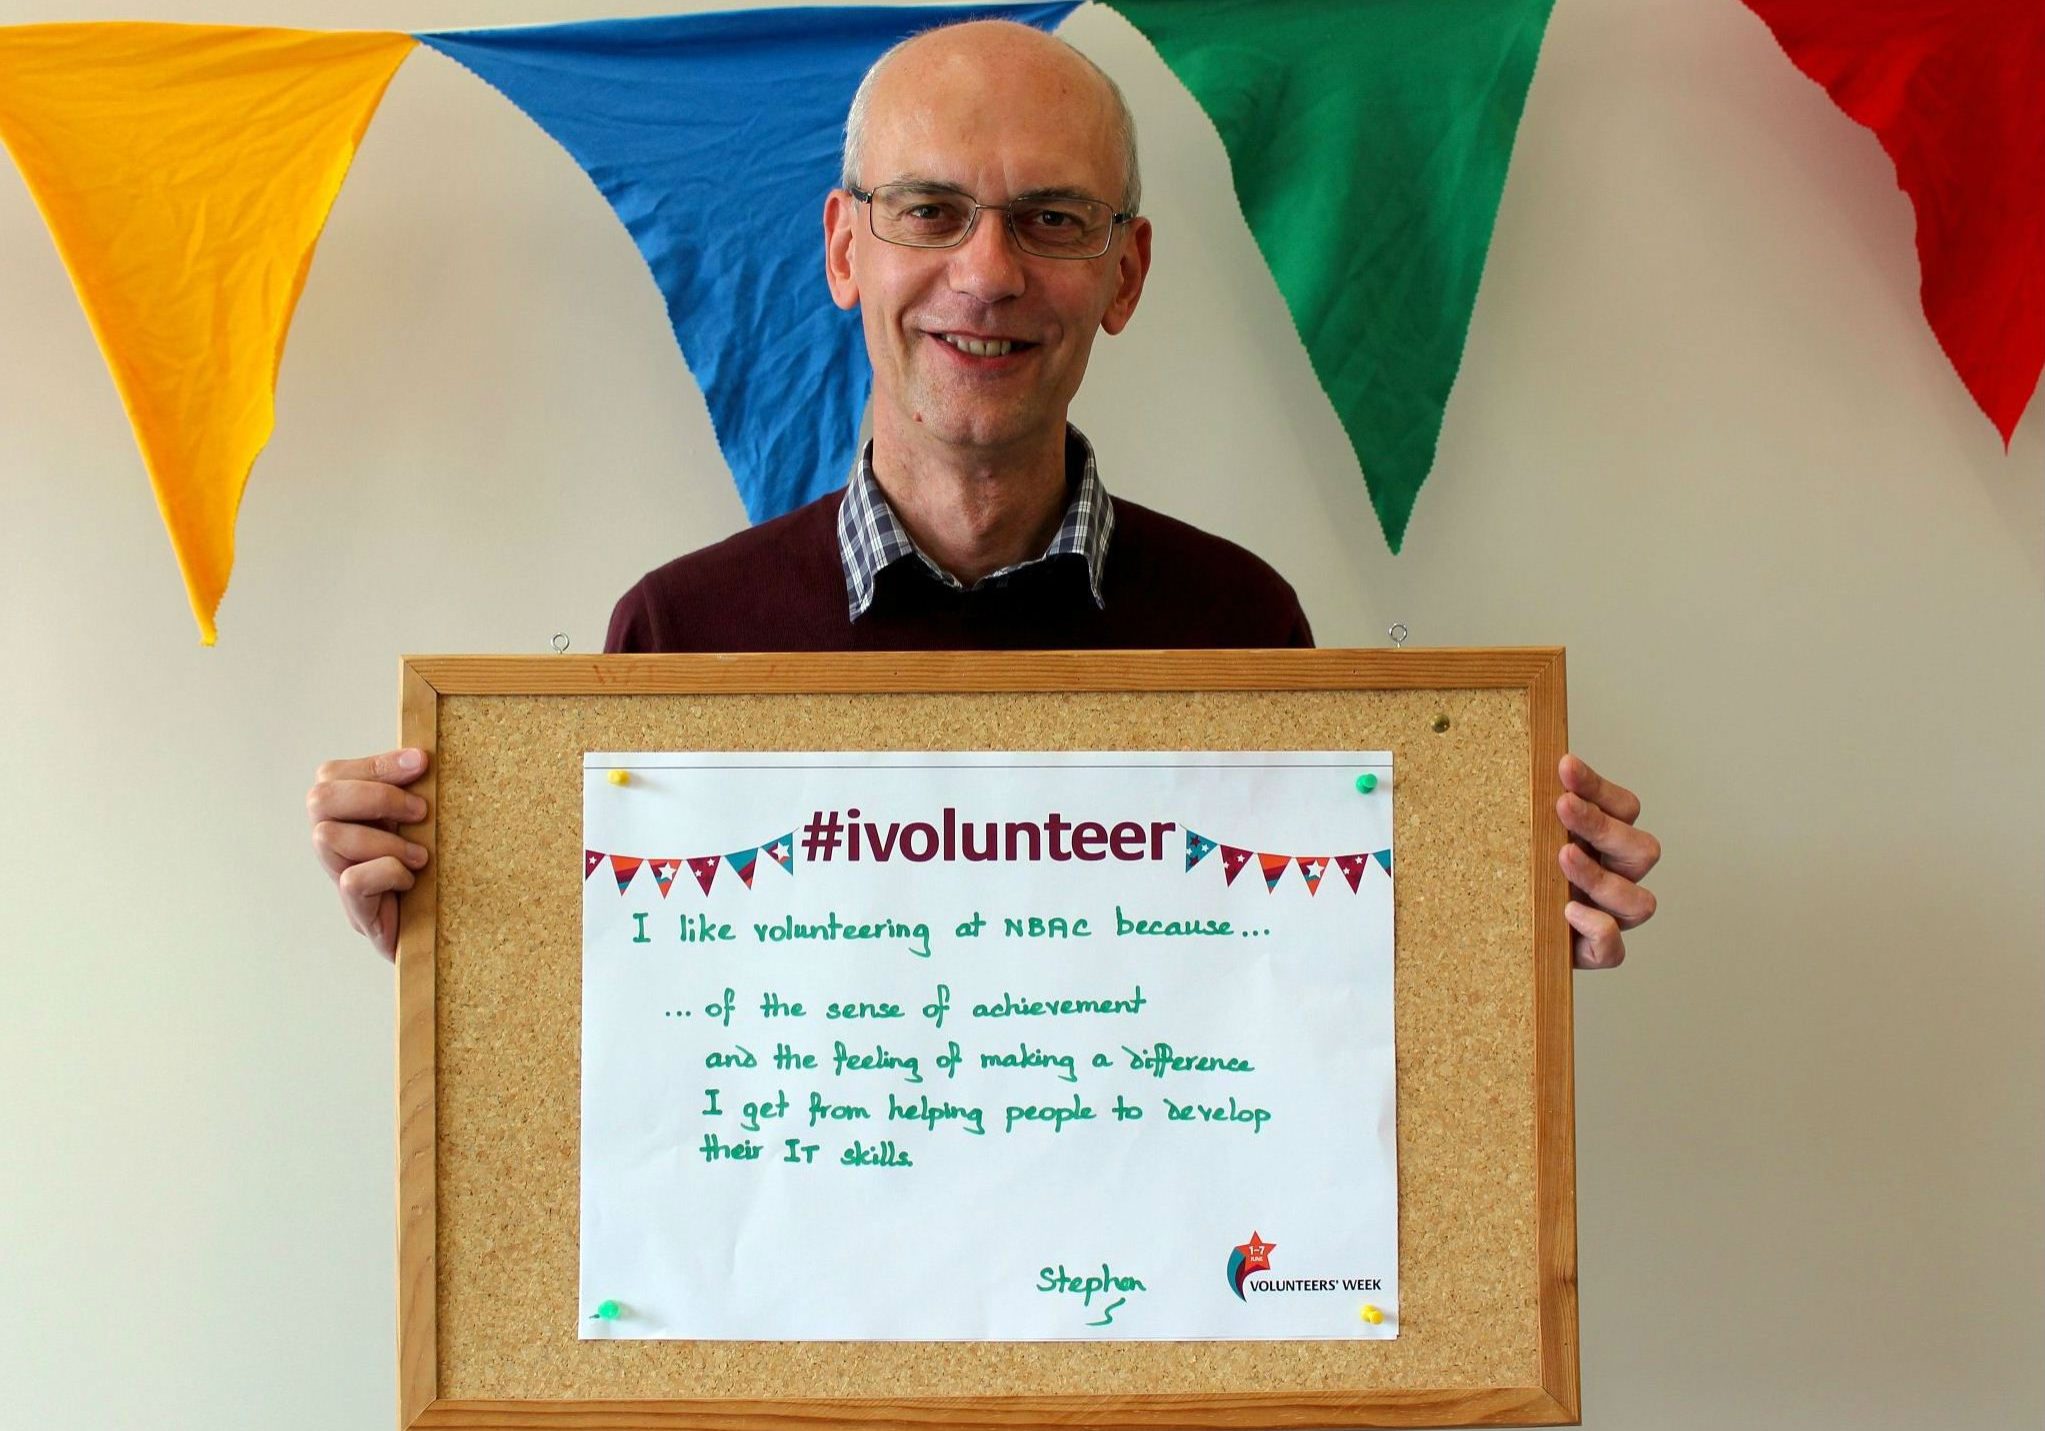 #ivolunteer
I like volunteering at NBAC because...
... of the sense of achievement
and the feeling of making a difference
I get from helping people to develop
their IT skills.
Stephen
1-7
JUNE
VOLUNTEERS' WEEK